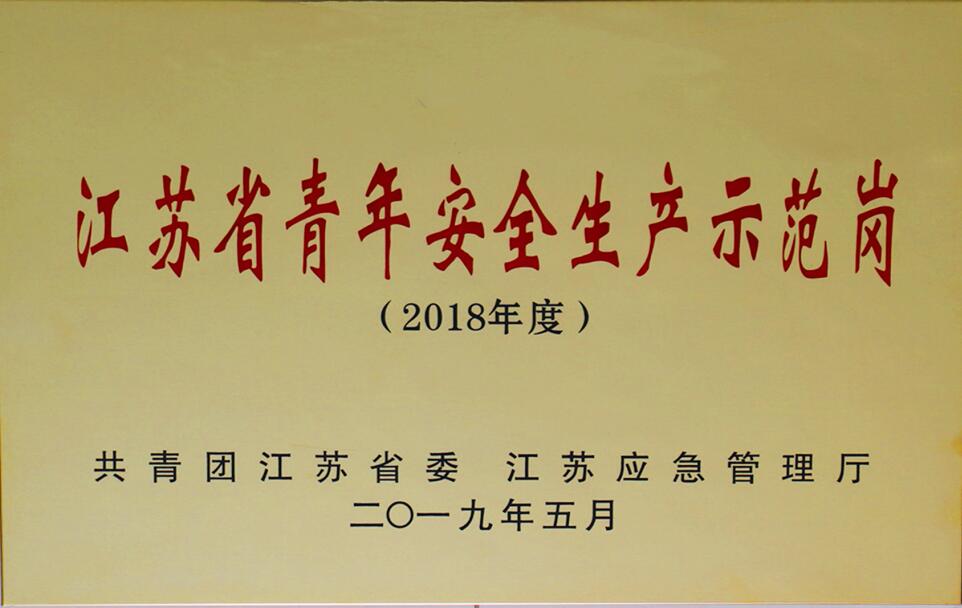 江苏省青年安全生产示范岗
（2018年度）
共青团江苏省委 江苏应急管理厅
二〇一九年五月